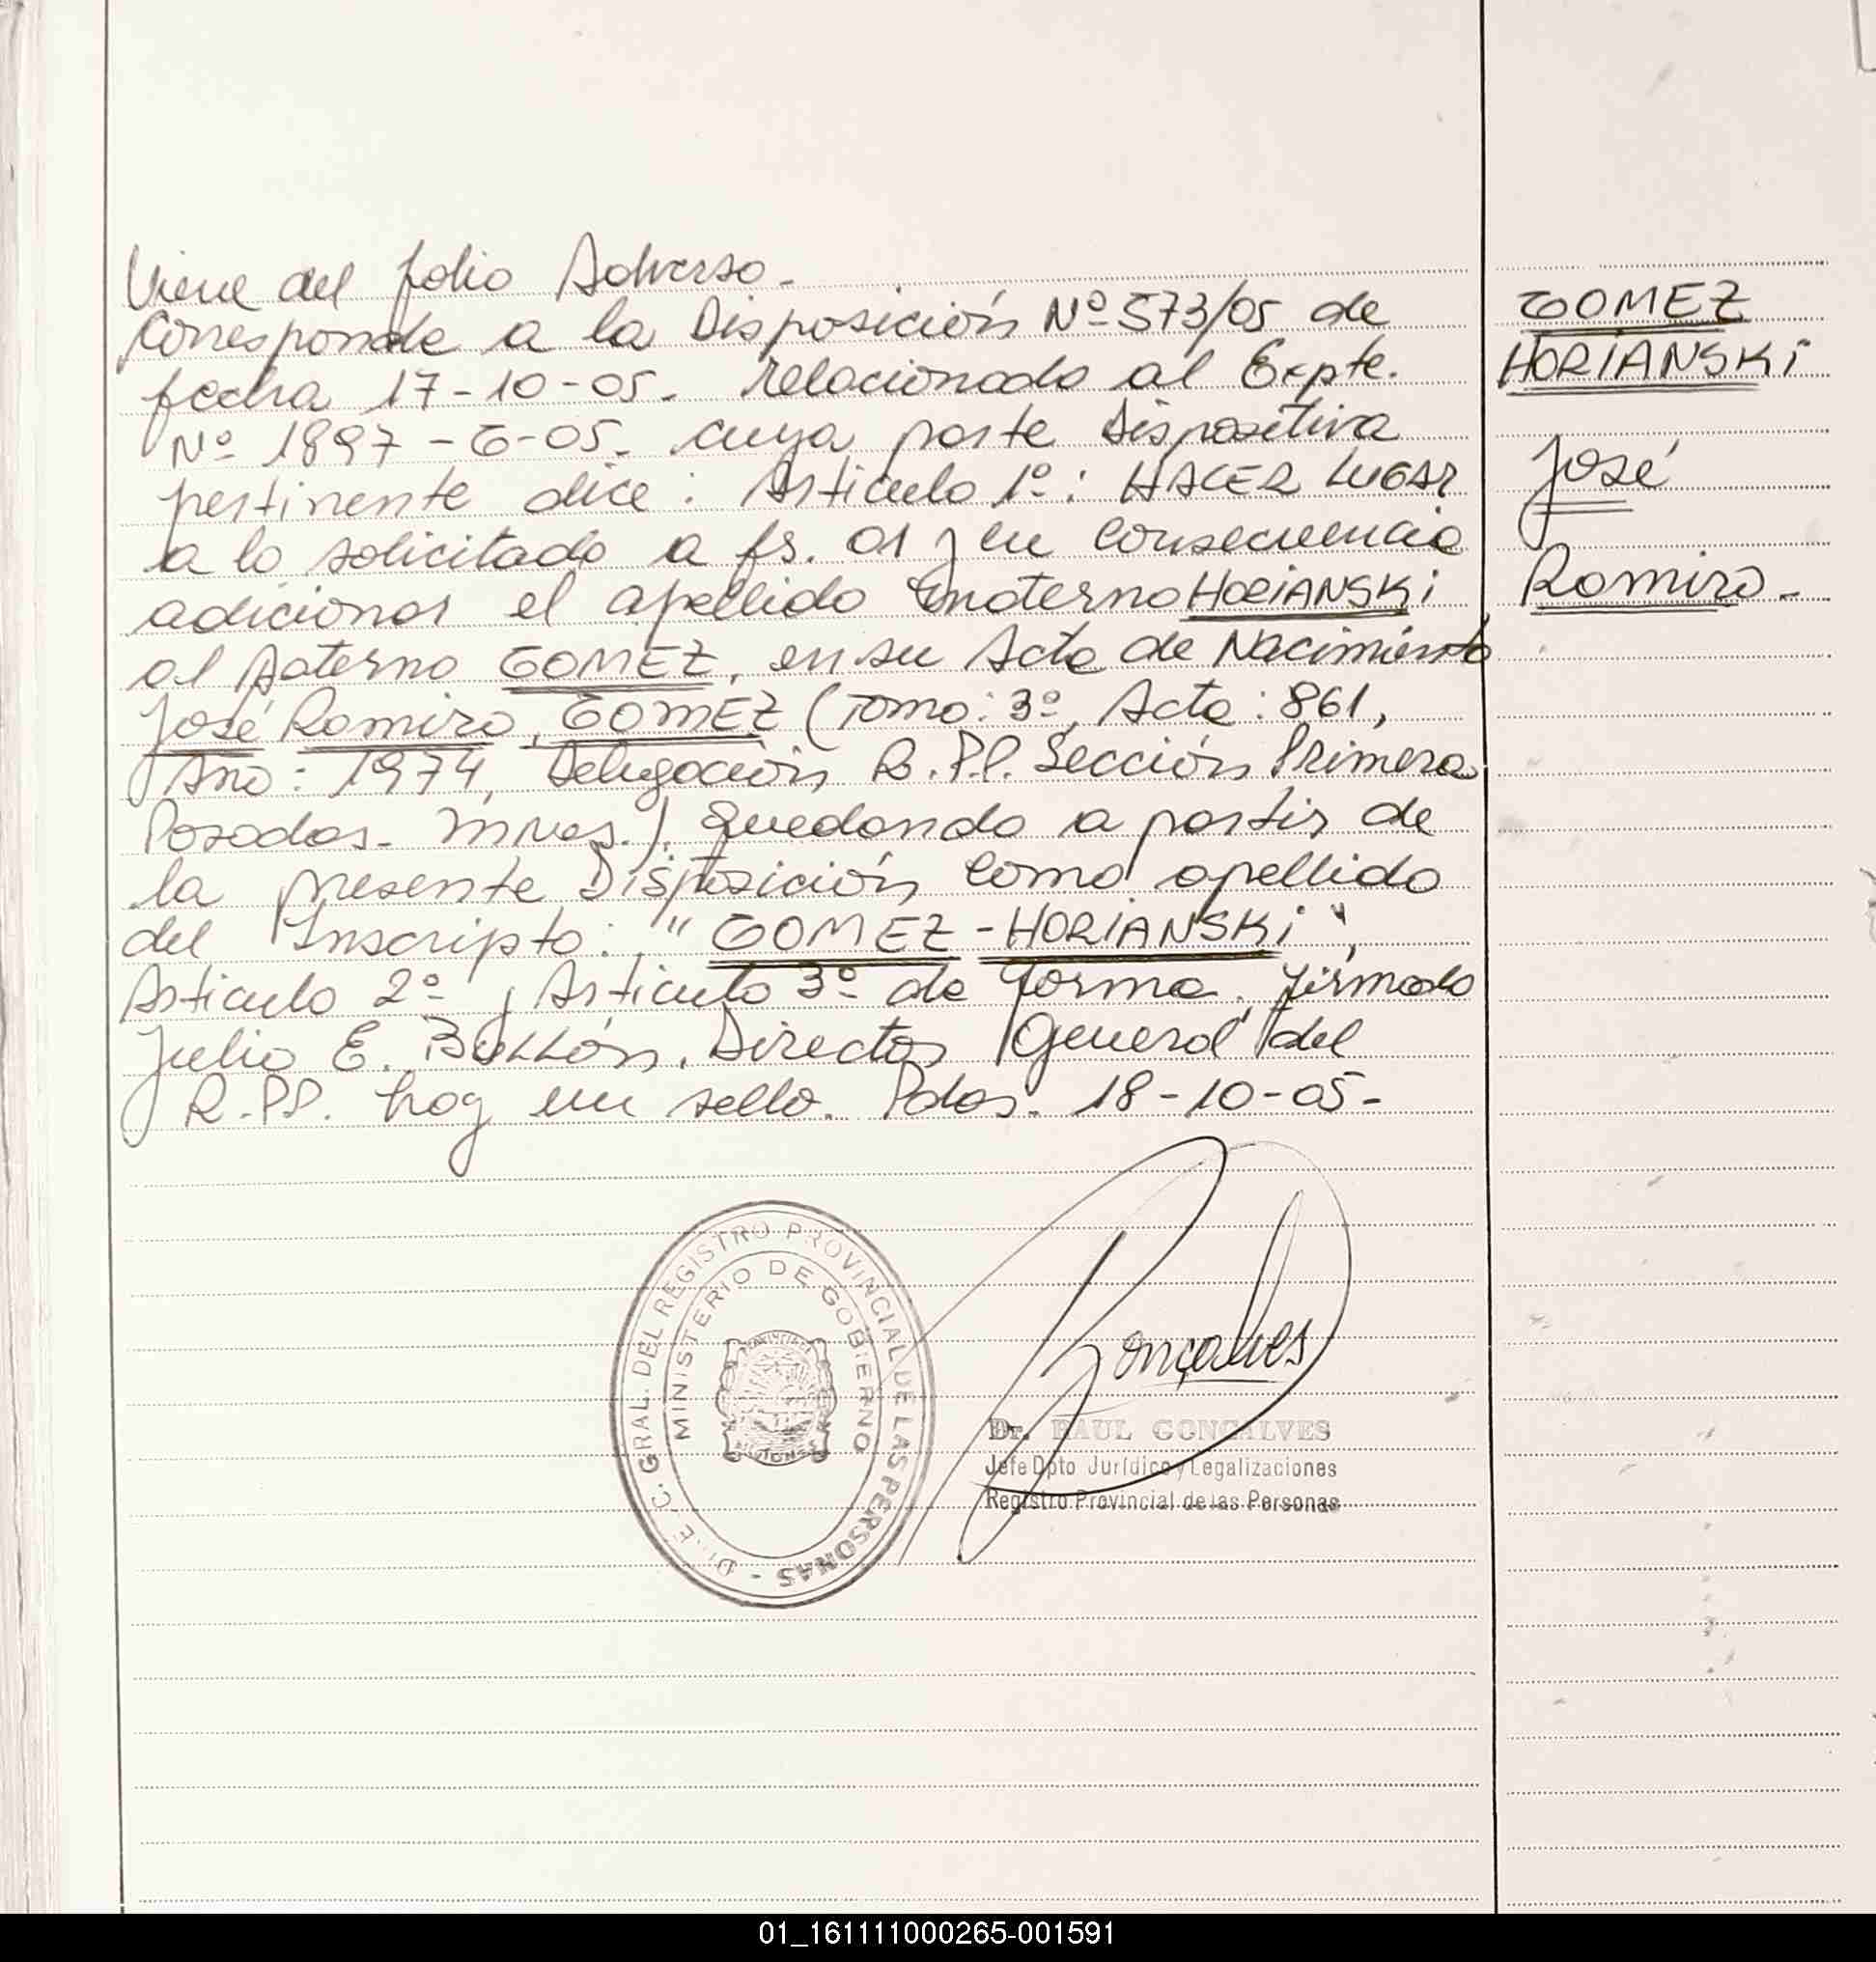 Viene del folio Adverso.-
Corresponde a la Disposición Nº 573/05 de
fecha 17-10-05. relacionado al Expte.
Nº 1897-G-05. cuya parte Dispositiva
pertinente dice: Articulo 1º: HACER LUGAR
a lo solicitado a fs. 01 y en consecuencia
adicionar el apellido materno HORIANSKi
al paterno GOMEZ, en su Acta de Nacimiento
José Ramiro, GOMEZ (Tomo: 3º, Acta: 861,
Año: 1974, Delegación R.P.P. Sección Primera
Posadas- Mnes.). Quedando a partir de
la presente Disposición como apellido
del Inscripto: "GOMEZ-HORIANSKi",
Articulo 2º y Articulo 3º de forma. Firmado
Julio E. Directos General del
R.PP. hay un sello. Pdas. 18-10-05-
GOMEZ
HORIANSKi
José
Ramiro.-
DIREC. GRAL. DEL REGISTRO PROVINCIAL DE LAS PERSONAS -
MINISTERIO DE GOBIERNO
Gonçalves
Dr. RAUL GONCALVES
Jefe Dpto Jurídico y Legalizaciones
Registro Provincial de las Personas
01_161111000265-001591